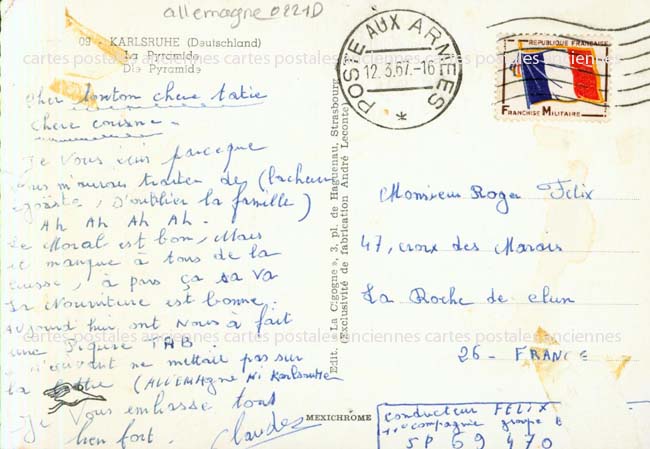 allemagne0221D
09 - KARLSRUHE (Deutschland)
La Pyramide
Die Pyramide
cartes postales anciennes cartes postales anciennes cartes postales anciennes
Cher tonton chere tatie
chere cousine -
Je Vous écris parceque
Vous m'auriez traiter de (lacheur
égoiste, D'oublier la famille)
Ah Ah Ah Ah -
Le Moral est bon, Mais
manque à tous de la
à pars ça sa va
La Nourriture est bonne.
Aujourd'hui ont Nous à fait
une Piqure TAB.
ne mettait pas sur
la lettre (ALLEMAGNE Ni Karlsruhe
Je Vous embrasse tous
bien fort. Claudez
Edit. « La Cigogne », 3, pl. de Haguenau, Strasbourg
(Exclusivité de fabrication André Leconte)
MEXICHROME
POSTE AUX ARMÉES
12.3.67.-16
*
REPUBLIQUE FRANCAISE
FRANCHISE MILITAIRE
Monsieur Roger Felix
47, croix des Marais
La Roche de Glun
26 - FRANCE
conducteur FELIX
11e compagnie groupe B
SP 69 470